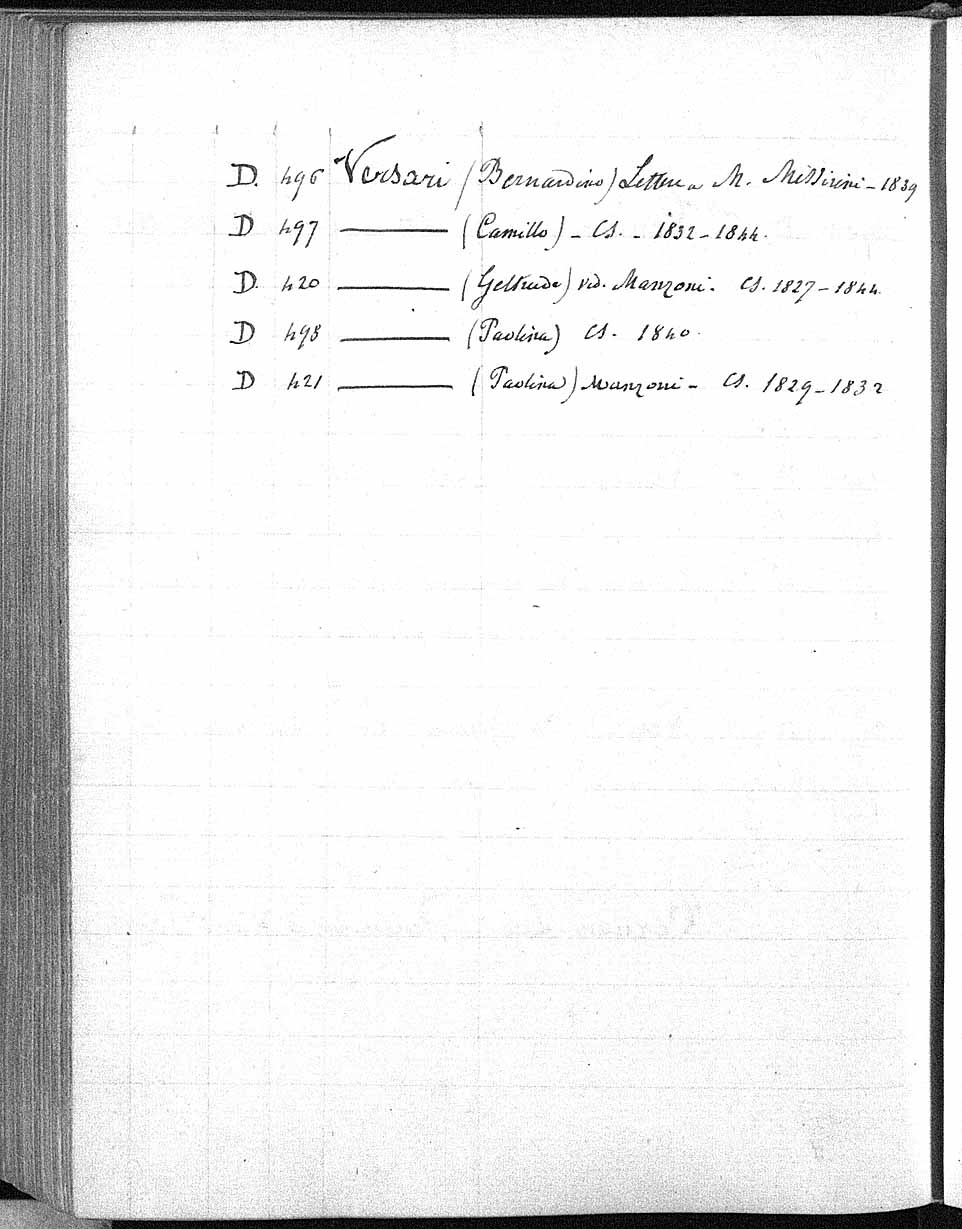 D. 496 Versari (Bernardino) Lettere a M. Missirini - 1839
D 497 ——— (Camillo) - CS. - 1832 - 1844.
D. 420 ——— (Geltrude) ved. Manzoni. CS. 1827 - 1844.
D 498 ——— (Paolina) CS. 1840.
D 421 ——— (Paolina) Manzoni - CS. 1829 - 1832